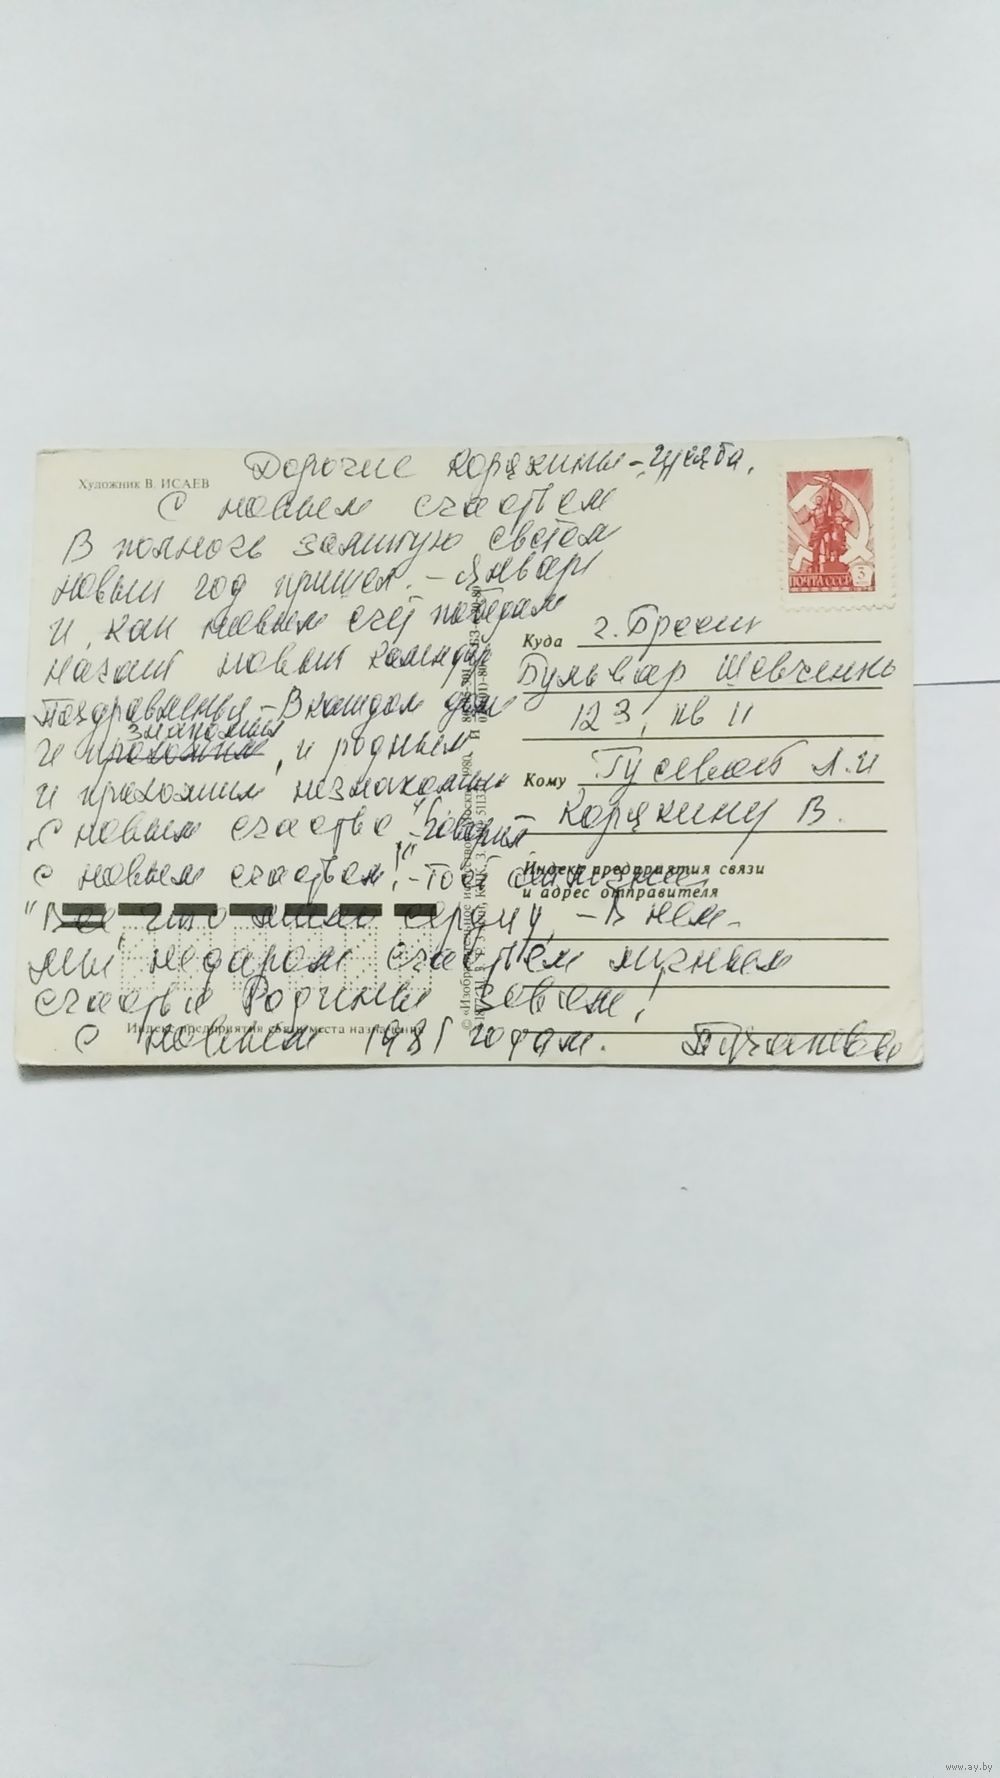 Художник В. ИСАЕВ
Дорогие Корякины
С новым счастьем
В полночь залитую светом
новый год пришел. – Январь
И, как новым счёт победам
начат новый календарь
Поздравленья – В каждом доме
знакомым
И прохожим, и родным
И прохожим незнакомым
„С новым счастье" – говорят
С новым счастьем!" – Тост
"Все, что мило сердцу, – В нем –
мы недаром счастьем личным
счастье Родины зовем!
С новым 1981 годом.
ПОЧТА СССР
3
Куда г. Брест
Бульвар Шевченко
123, кв 11
Кому Гусевой Л.И
Корякину В.
Индекс предприятия связи
и адрес отправителя
Индекс предприятия связи места назначения
www.ay.by